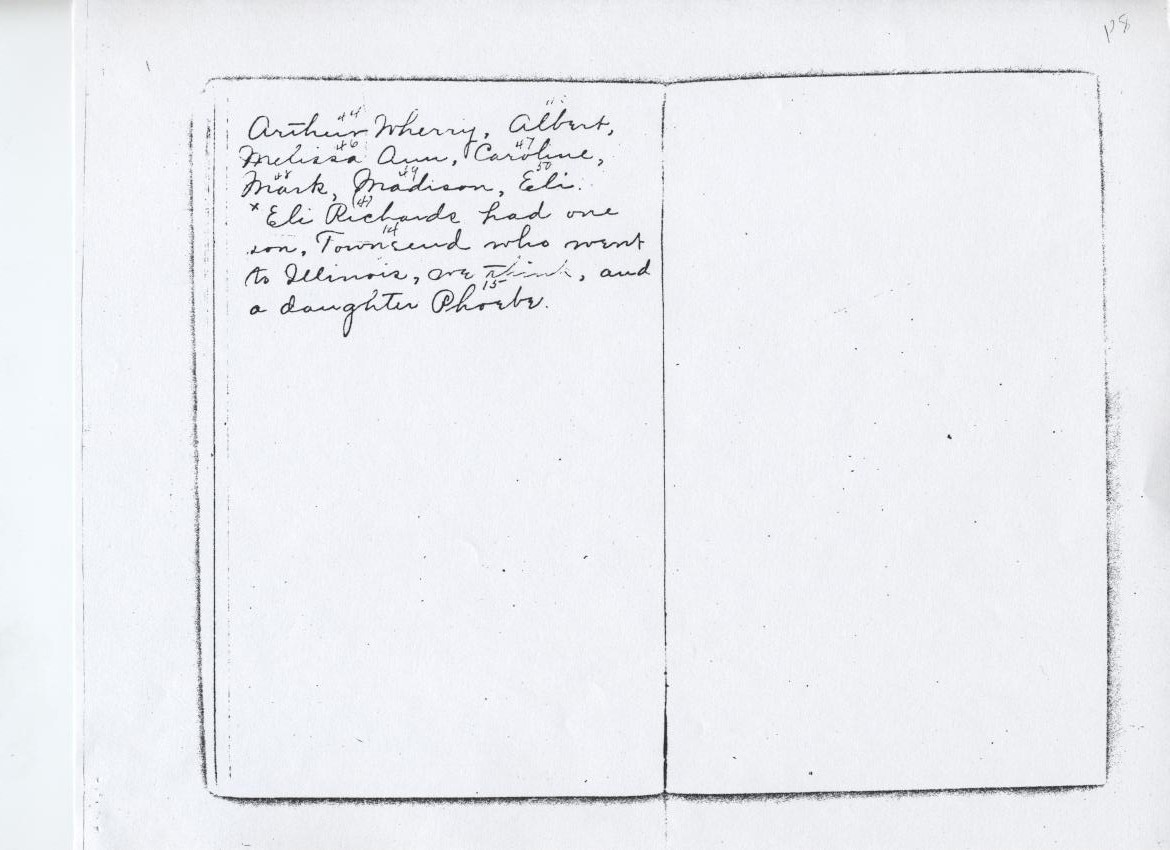 p8
44
Arthur Wherry, Albert,
46 47
Melissa Ann, Caroline,
48 49 50
Mark, Madison, Eli.
x Eli Richards had one
14
son, Townsend who went
to Illinois, we think, and
15
a daughter Phoebe.